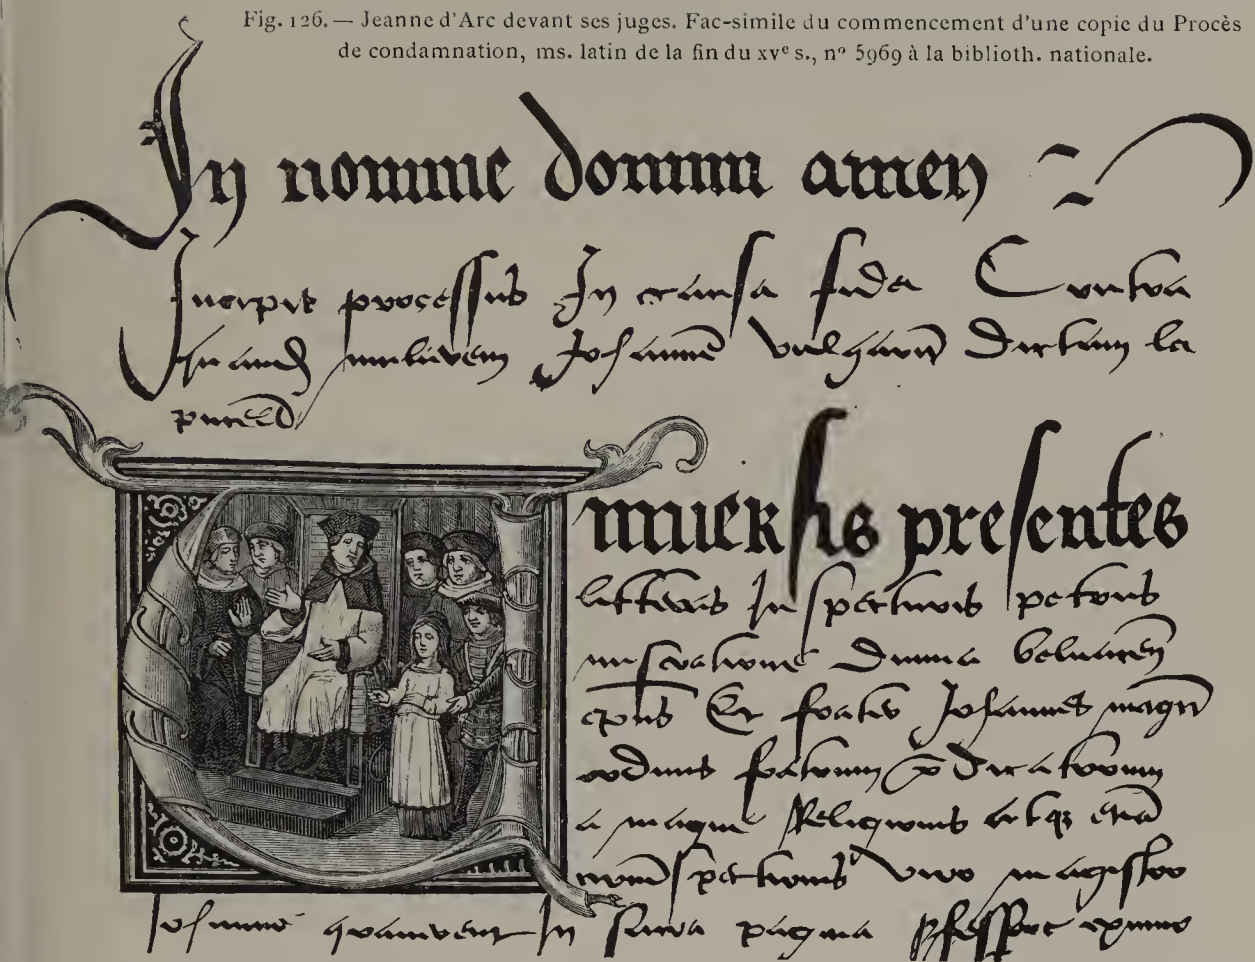 Fig. 126. — Jeanne d'Arc devant ses juges. Fac-simile du commencement d'une copie du Procès
de condamnation, ms. latin de la fin du XVe s., no 5969 à la biblioth. nationale.
In nomine domini amen
Incipit processus In causa fidei Contra
quamdam mulierem Johannam vulgariter dictam la
pucelle
Universis presentes
litteras Inspecturis petrus
miseratione divina belvacen
epus Et frater Johannes magri
ordinis fratrum predicatorum
Religionis atque etiam
circumspectionis viro magistro
Johanne graverent In sacra pagina professore eximio